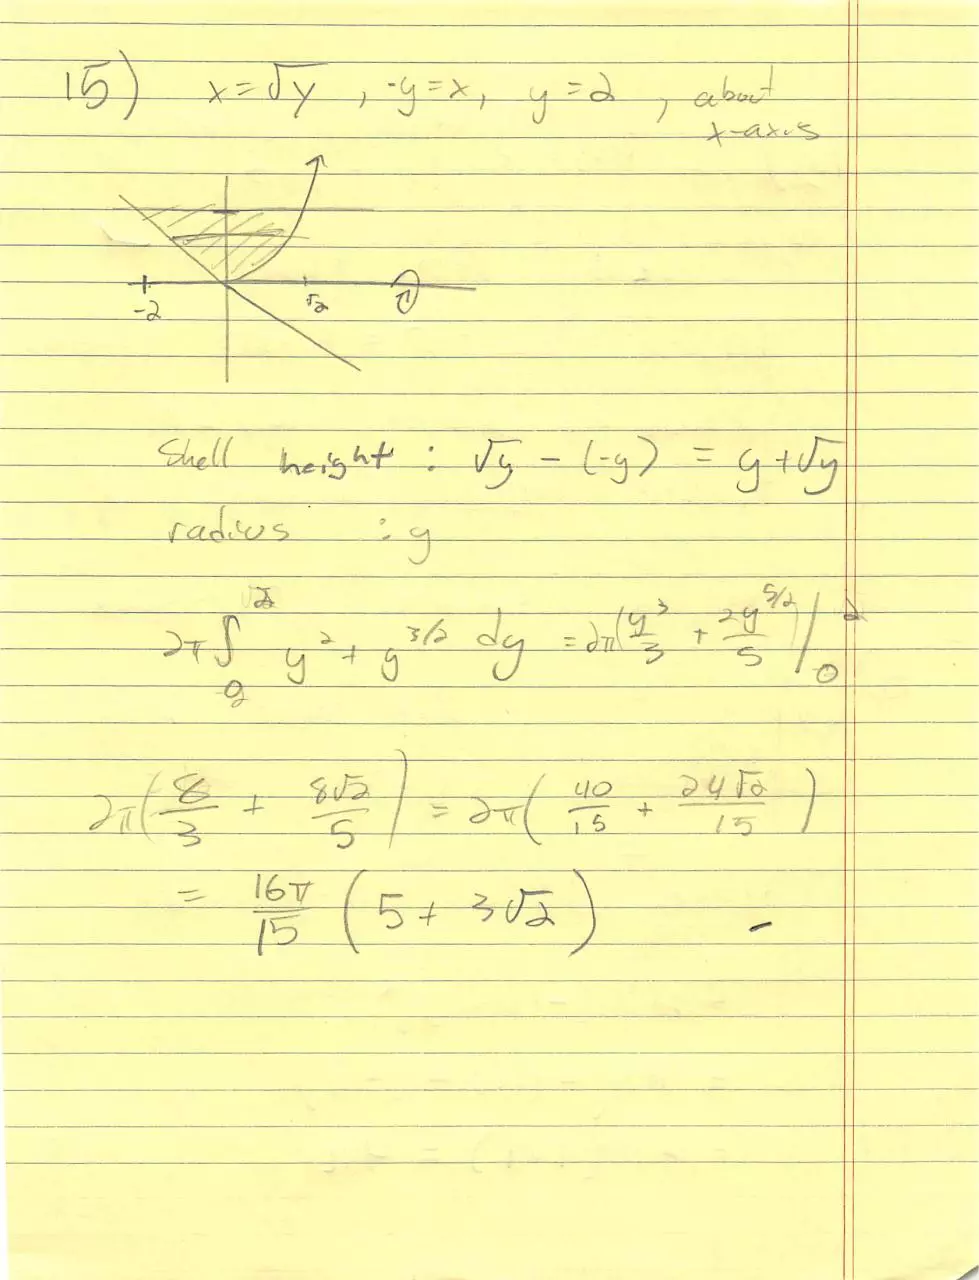 15) x = √y , -y = x, y = 2 , about
x-axis
-2 √2
Shell height : √y - (-y) = y + √y
radius : y
2π ∫₀² y² + y^3/2 dy = 2π( y³/3 + 2y^5/2/5 ) |₀²
2π( 8/3 + 8√2/5 ) = 2π( 40/15 + 24√2/15 )
= 16π/15 ( 5 + 3√2 )